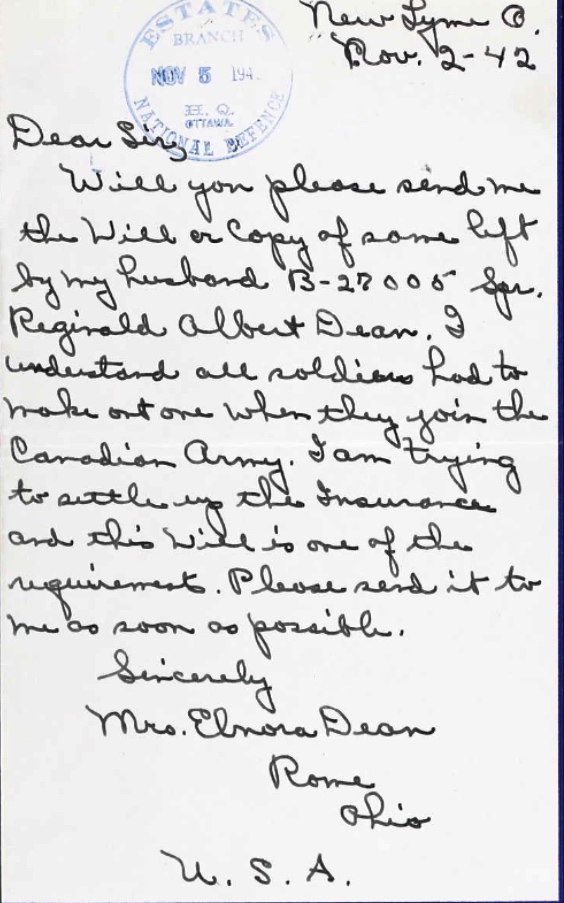 New Lyme O.
Nov. 2-42
ESTATES
BRANCH
NOV 5 194
H. Q.
OTTAWA
NATIONAL DEFENCE
Dear Sir,
Will you please send me
the Will or Copy of same left
by my husband B-27005 Spr.
Reginald Albert Dean. I
understand all soldiers had to
make out one when they join the
Canadian Army. I am trying
to settle up the Insurance
and this Will is one of the
requirement. Please send it to
me as soon as possible.
Sincerely
Mrs. Elnora Dean
Rome
Ohio
U. S. A.